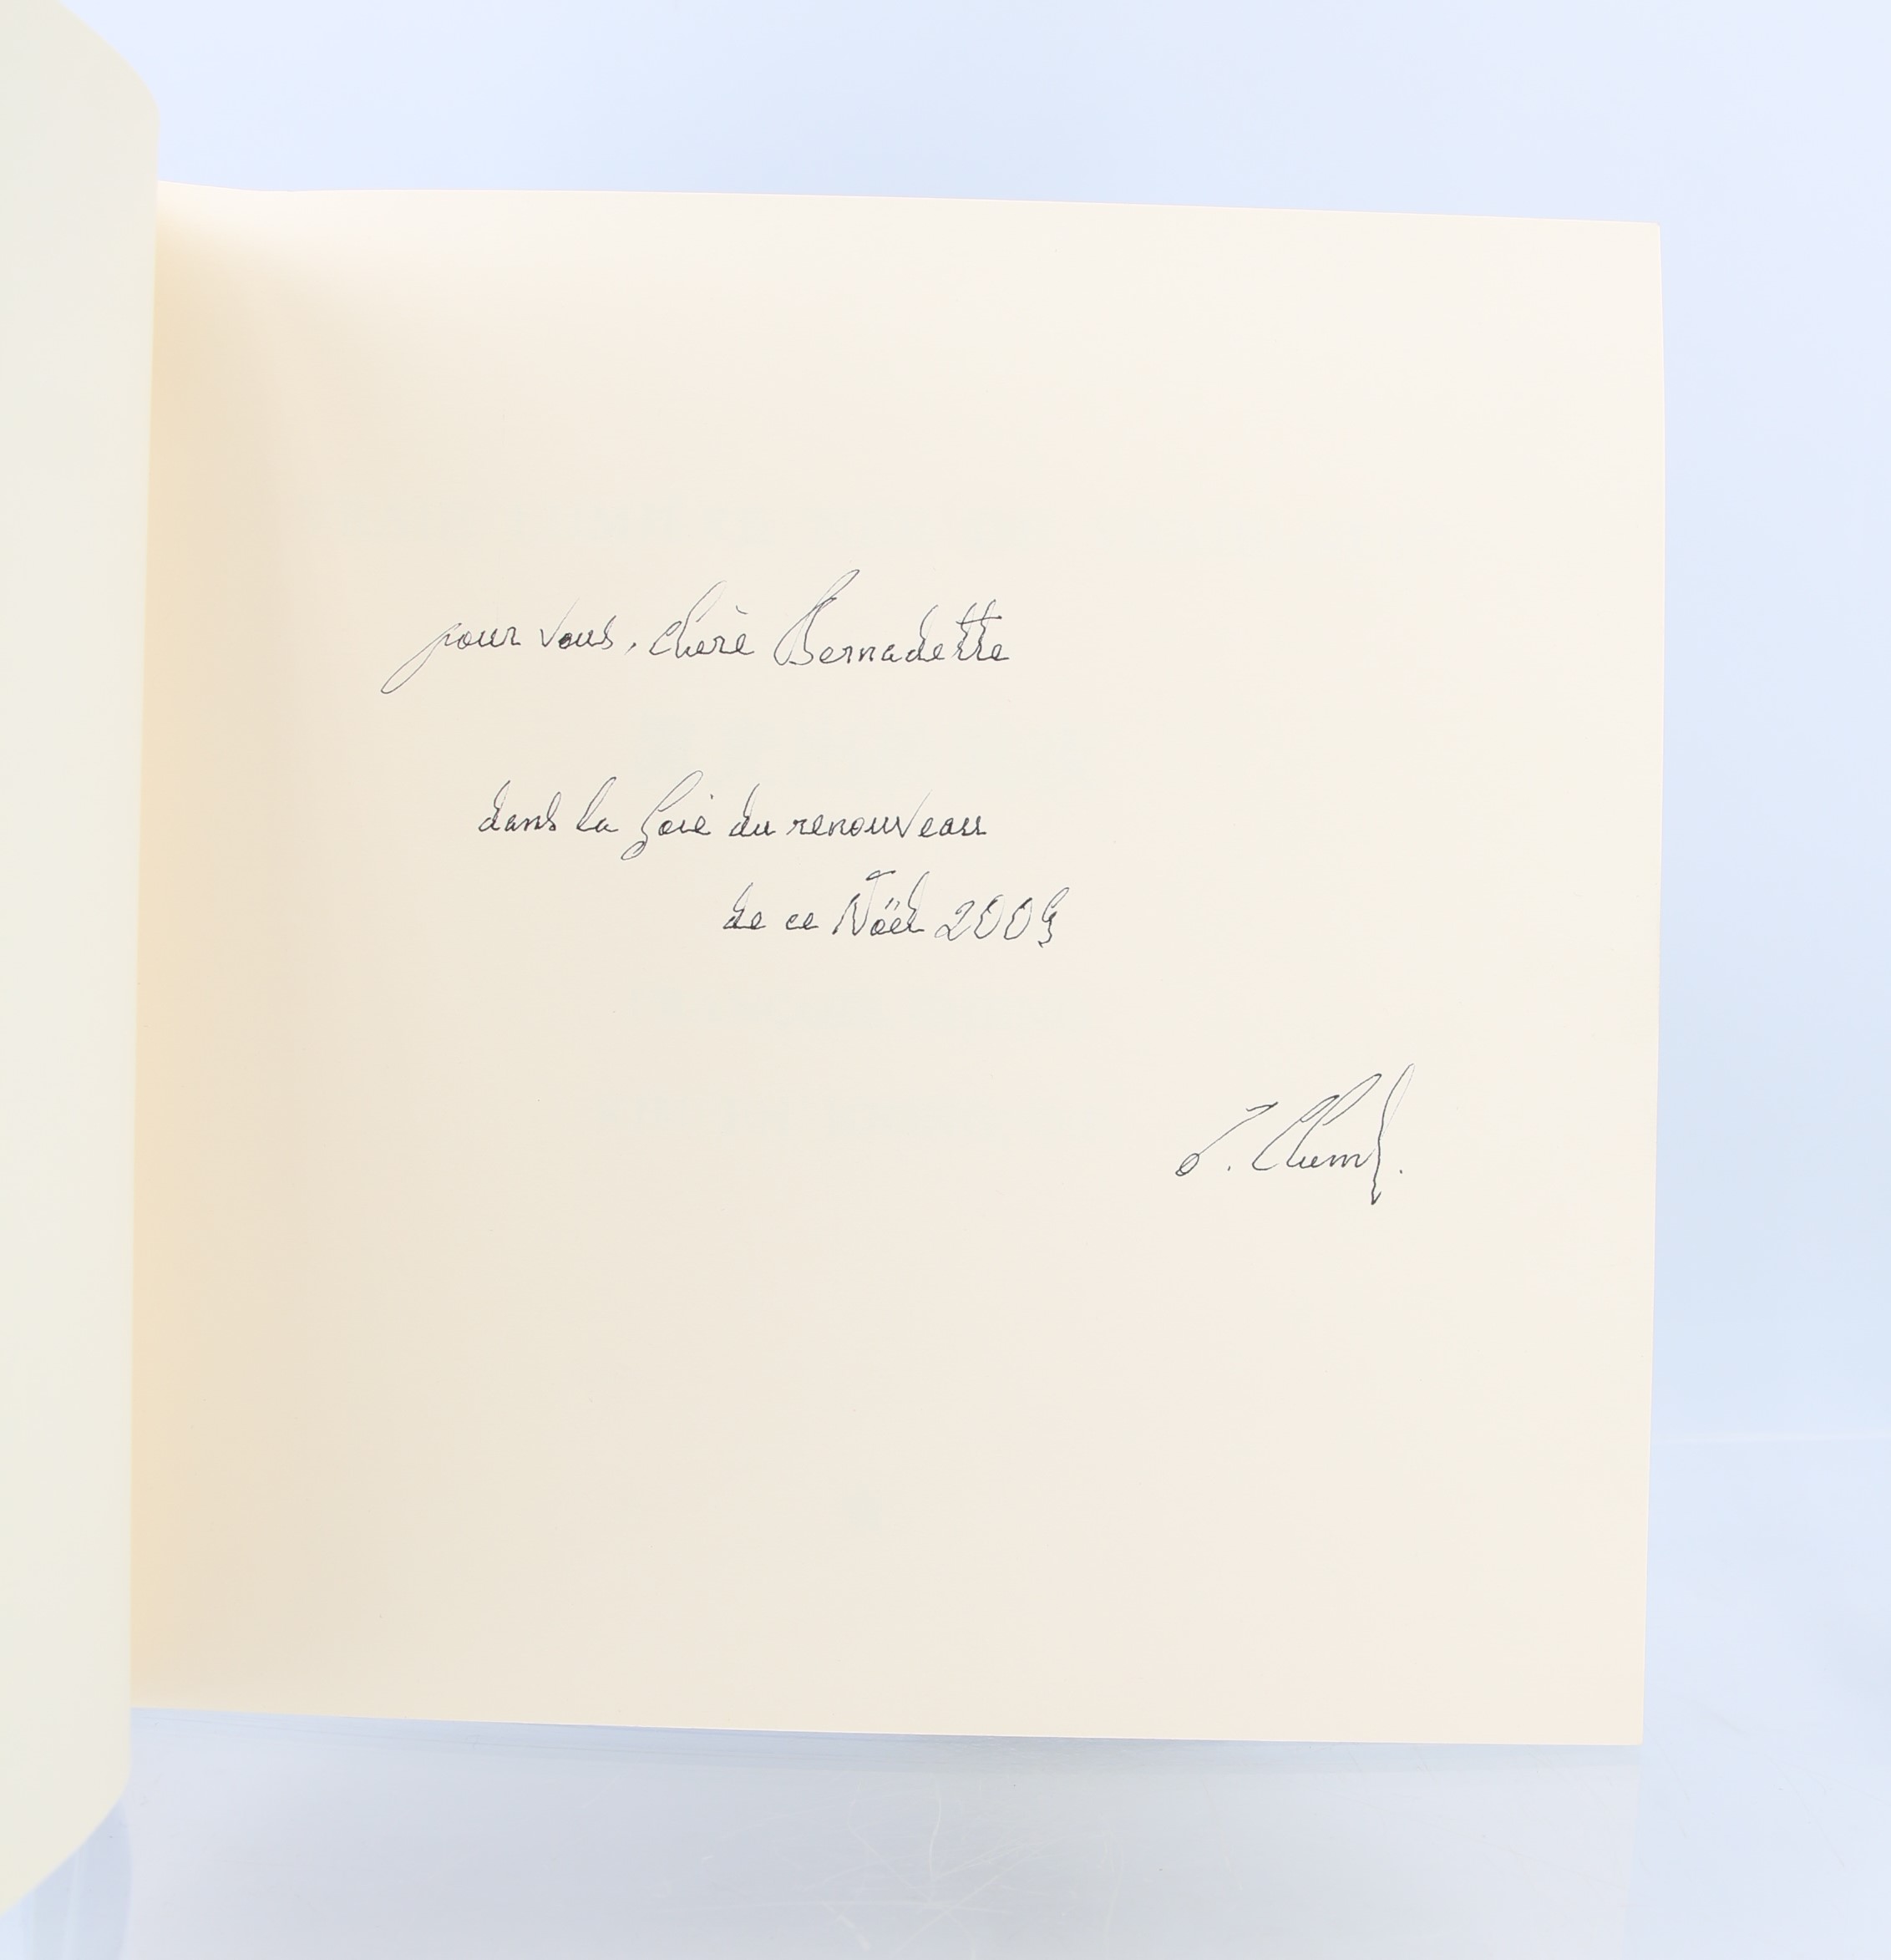 pour vous, chère Bernadette
dans la joie du renouveau
de ce Noël 2009